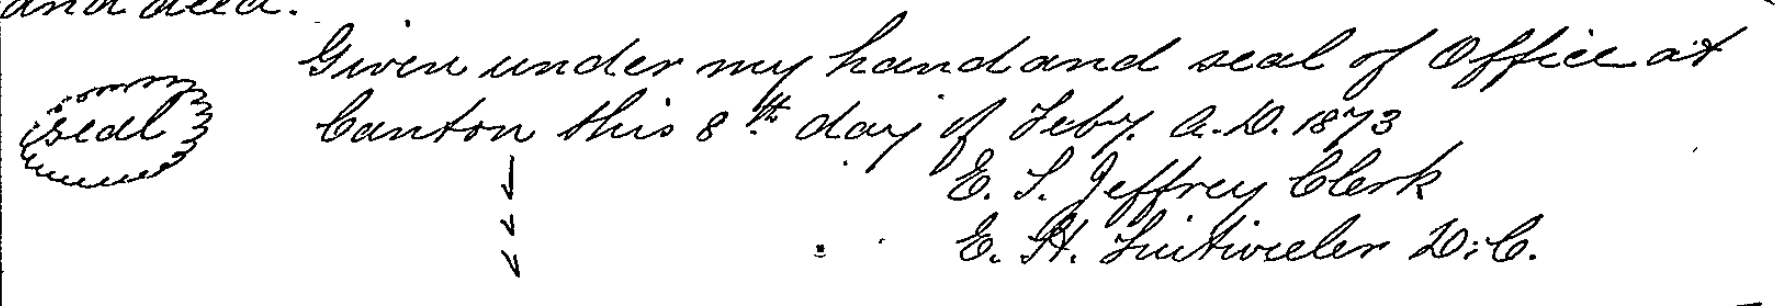 and deed.
Given under my hand and seal of Office at
seal Canton this 8th day of Feby. A.D. 1873
E. S. Jeffrey Clerk
E. H. D.C.